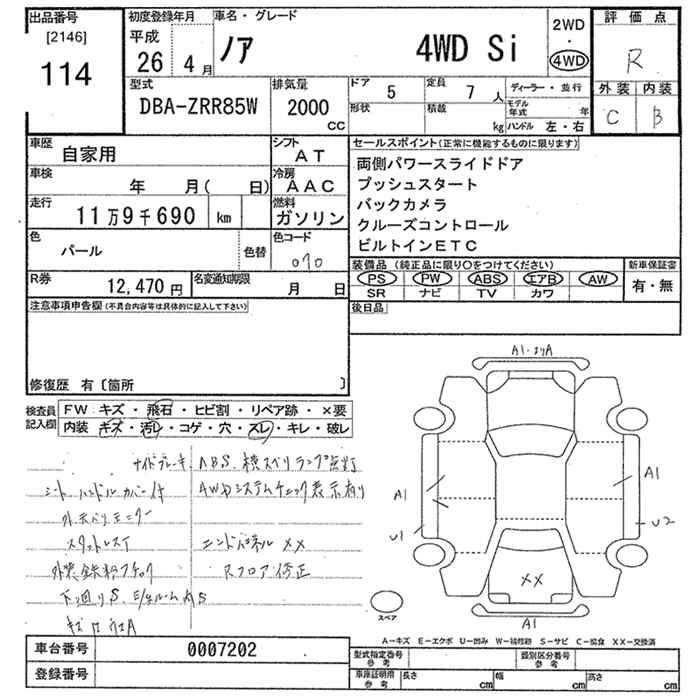 出品番号
[2146]
114
初度登録年月
平成
26 4月
車名・グレード
ノア 4WD Si
2WD
・
4WD
評価点
R
外装 内装
C B
型式
DBA-ZRR85W
排気量
2000
CC
ドア 5
定員 7 人
ディーラー・並行
形状
積載 kg
モデル年式 年
ハンドル 左・右
車歴
自家用
シフト
AT
車検
年 月( 日)
冷房
AAC
走行
11万9千690 km
燃料
ガソリン
色
パール
色替
色コード
070
R券
12,470円
名変通知期限
月 日
セールスポイント(正常に機能するものに限ります)
両側パワースライドドア
プッシュスタート
バックカメラ
クルーズコントロール
ビルトインETC
装備品 (純正品に限り○をつけてください)
PS PW ABS エアB AW
SR ナビ TV カワ
新車保証書
有・無
後日品
注意事項申告欄(不具合内容等は具体的に記入して下さい)
修復歴 有〔箇所 〕
検査員記入欄
FW キズ・飛石・ヒビ割・リペア跡・×要
内装 キズ・汚レ・コゲ・穴・スレ・キレ・破レ
サイドブレーキ、ABS、横スベリランプ点灯
シートハンドルカバー付
4WDシステムチェック表示有り
スタットレス
エンドパネル ××
Rフロア修正
A1
A1
U1
U2
××
A1
スペア
A-キズ E-エクボ U-凹み W-補修跡 S-サビ C-腐食 XX-交換済
車台番号
0007202
登録番号
型式指定番号
参考
類別区分番号
参考
車庫証明用
参考
長さ cm
幅 cm
高さ cm